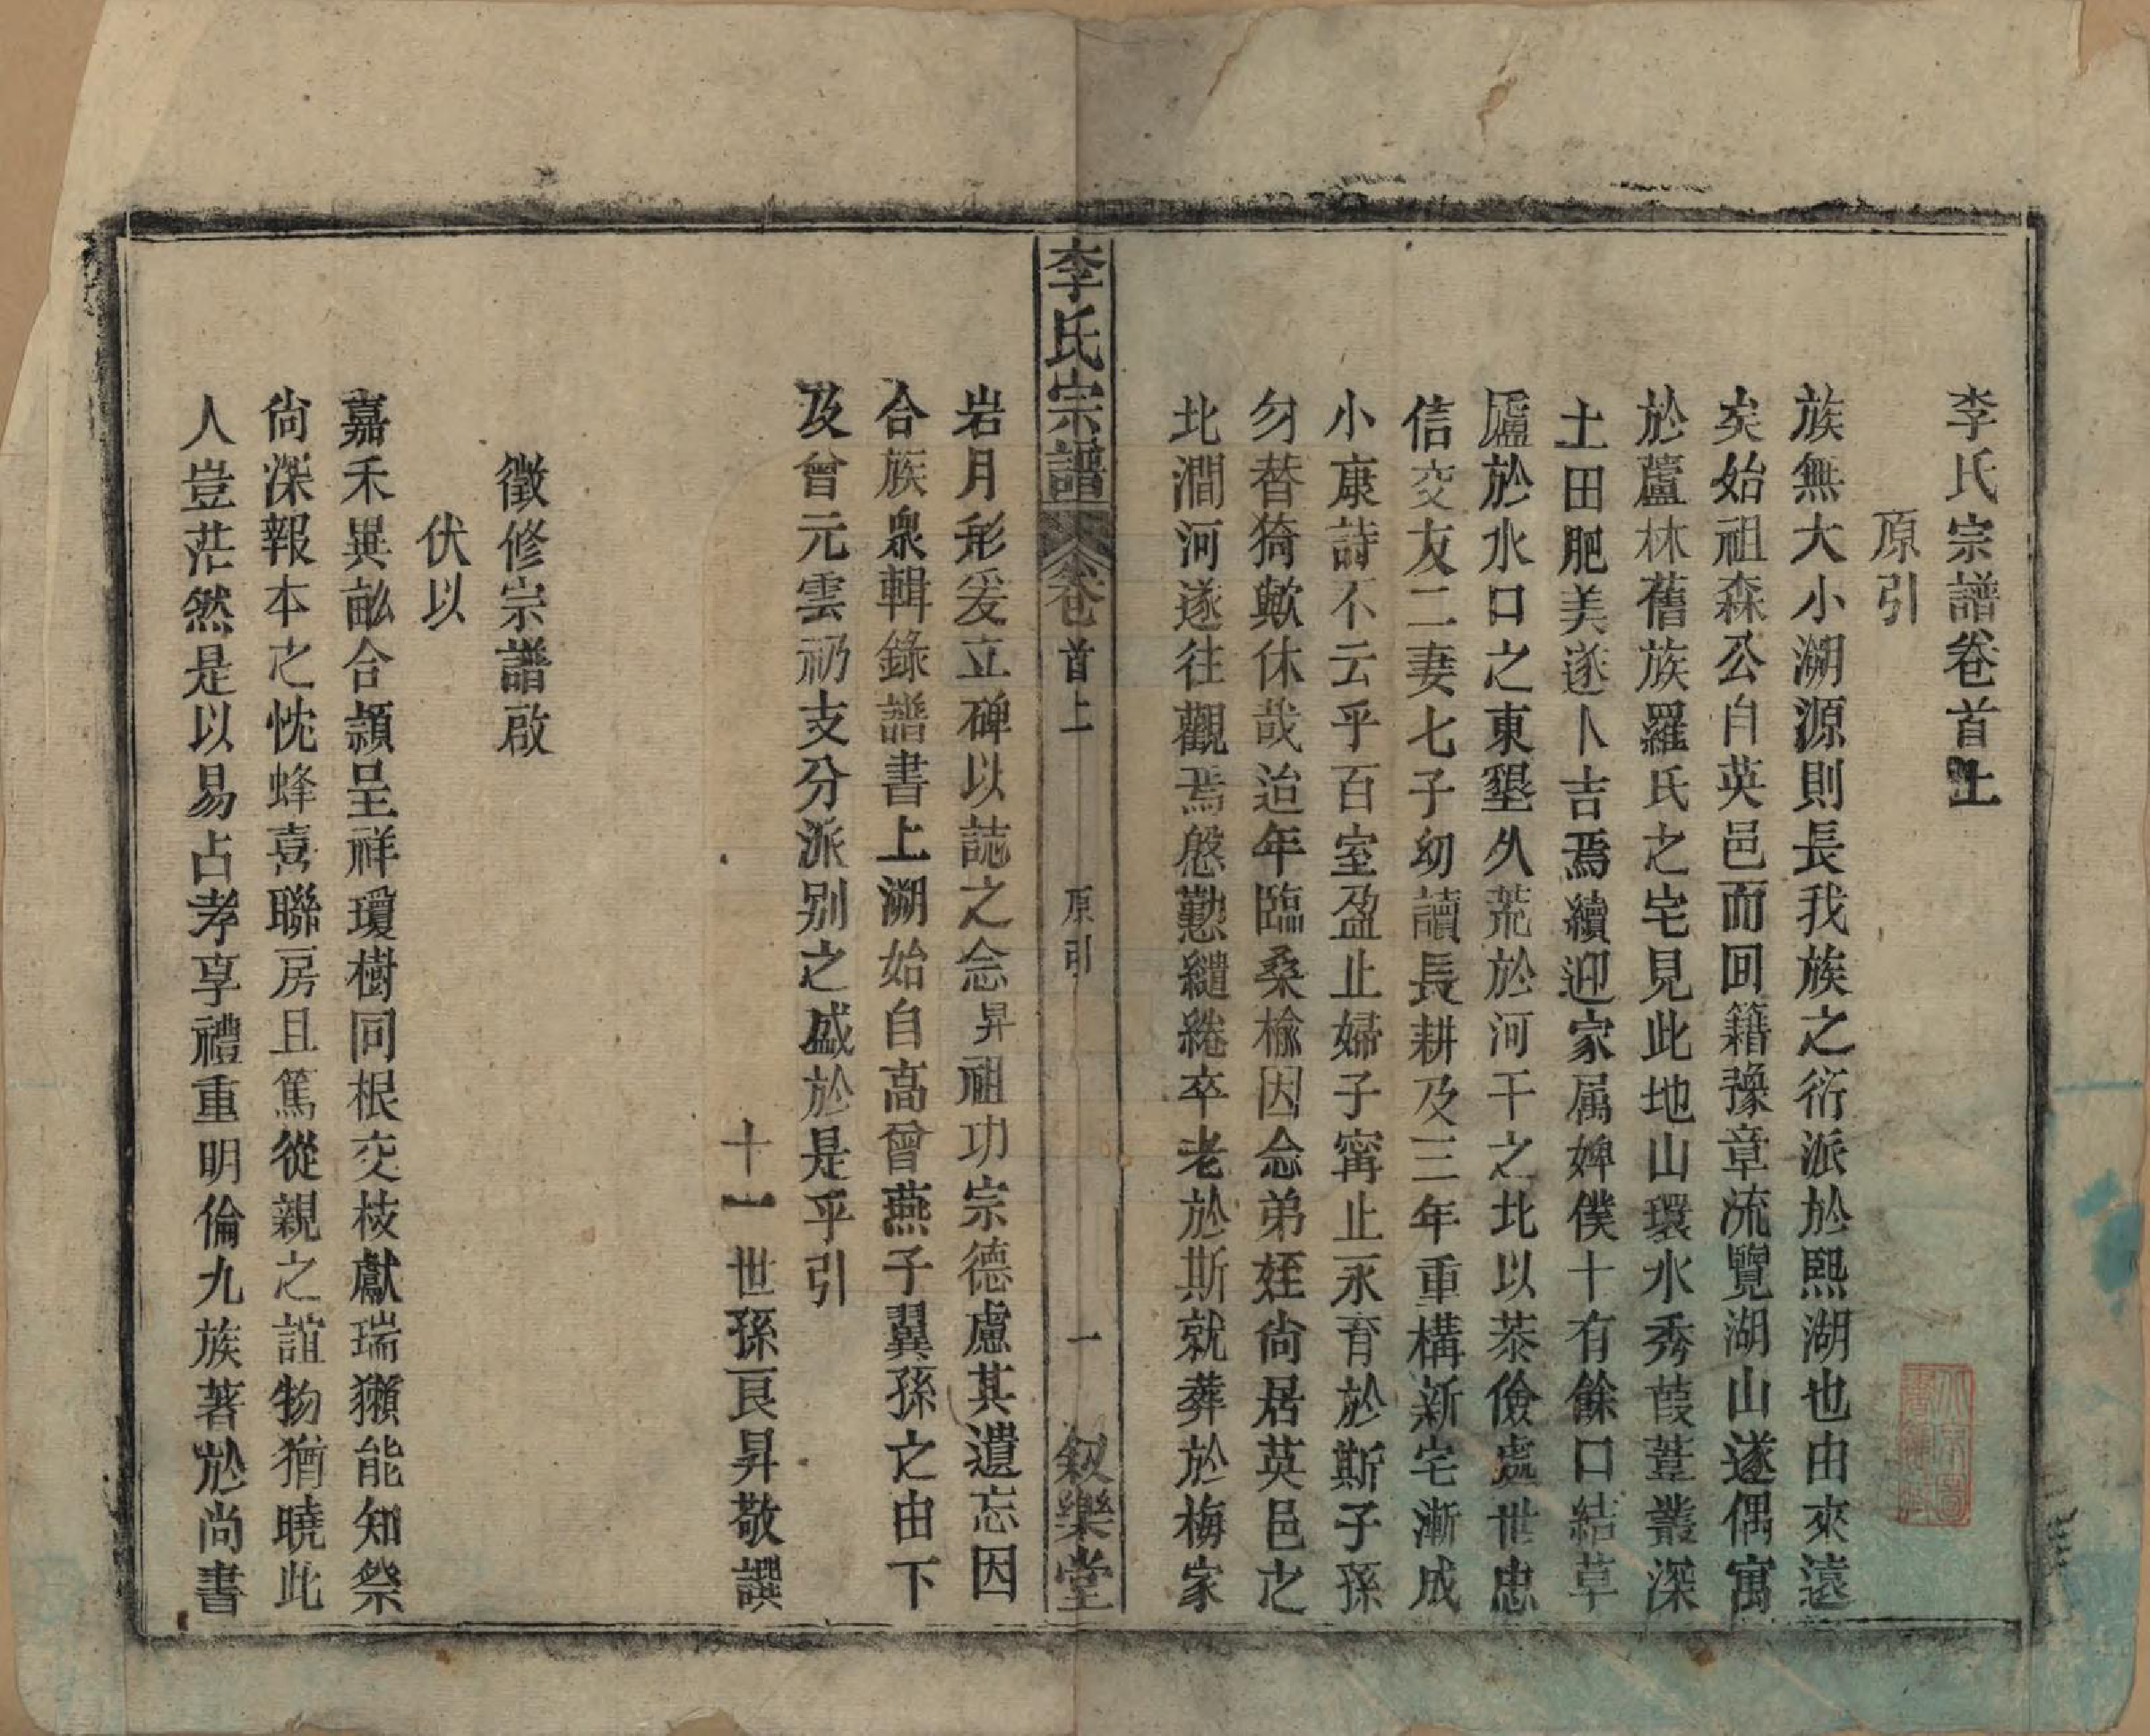 李氏宗譜卷首上
原引
族無大小溯源則長我族之衍派於熙湖也由來遠
矣始祖森公自英邑而回籍豫章流覽湖山遂偶寓
於蘆林舊族羅氏之宅見此地山環水秀葭葦叢深
土田肥美遂卜吉焉續迎家屬婢僕十有餘口結草
廬於水口之東墾久荒於河干之北以恭儉處世忠
信交友二妻七子幼讀長耕及三年重構新宅漸成
小康詩不云乎百室盈止婦子寗止永育於斯子孫
勿替猗歟休哉迨年臨桑榆因念弟姪尙居英邑之
北澗河遂往觀焉慇懃繾綣卒老於斯就葬於梅家
李氏宗譜 卷首上 原引 一 敘樂堂
岩月形爰立碑以誌之念昇祖功宗德慮其遺忘因
合族衆輯錄譜書上溯始自高曾燕子翼孫之由下
及曾元雲礽支分派别之盛於是乎引
十一世孫良昇敬譔
徵修宗譜啟
伏以
嘉禾異畝合頴呈祥瓊樹同根交枝獻瑞獺能知祭
尙深報本之忱蜂喜聯房且篤從親之誼物猶曉此
人豈茫然是以易占孝享禮重明倫九族著於尚書